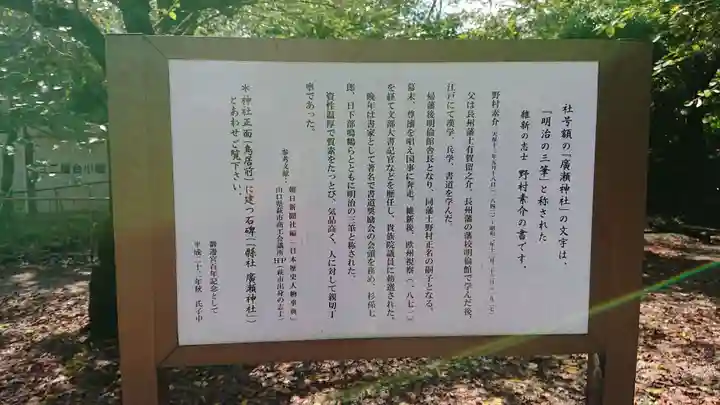 社号額の「廣瀬神社」の文字は、
「明治の三筆」と称された
維新の志士 野村素介の書です。
野村素介
父は長州藩士有賀留之介、長州藩の藩校明倫館で学んだ後、
江戸にて漢学、兵学、書道を学んだ。
帰藩後明倫館舎長となり、同藩士野村正名の嗣子となる。
幕末、尊攘を唱え国事に奔走。維新後、欧州視察(一八七一)
を経て文部大書記官などを歴任し、貴族院議員に勅選された。
晩年は書家として著名で書道奨励会の会頭を務め、杉孫七
郎、日下部鳴鶴らとともに明治の三筆と称された。
資性温厚で質素をたっとび、気品高く、人に対して親切丁
寧であった。
参考文献:朝日新聞社編「日本歴史人物事典」
山口県萩市商工会議所HP「萩市出身の志士」
*神社正面(鳥居前)に建つ石碑(「縣社 廣瀬神社」)
とあわせご覧下さい。
御遷宮百年記念として
平成二十三年秋 氏子中